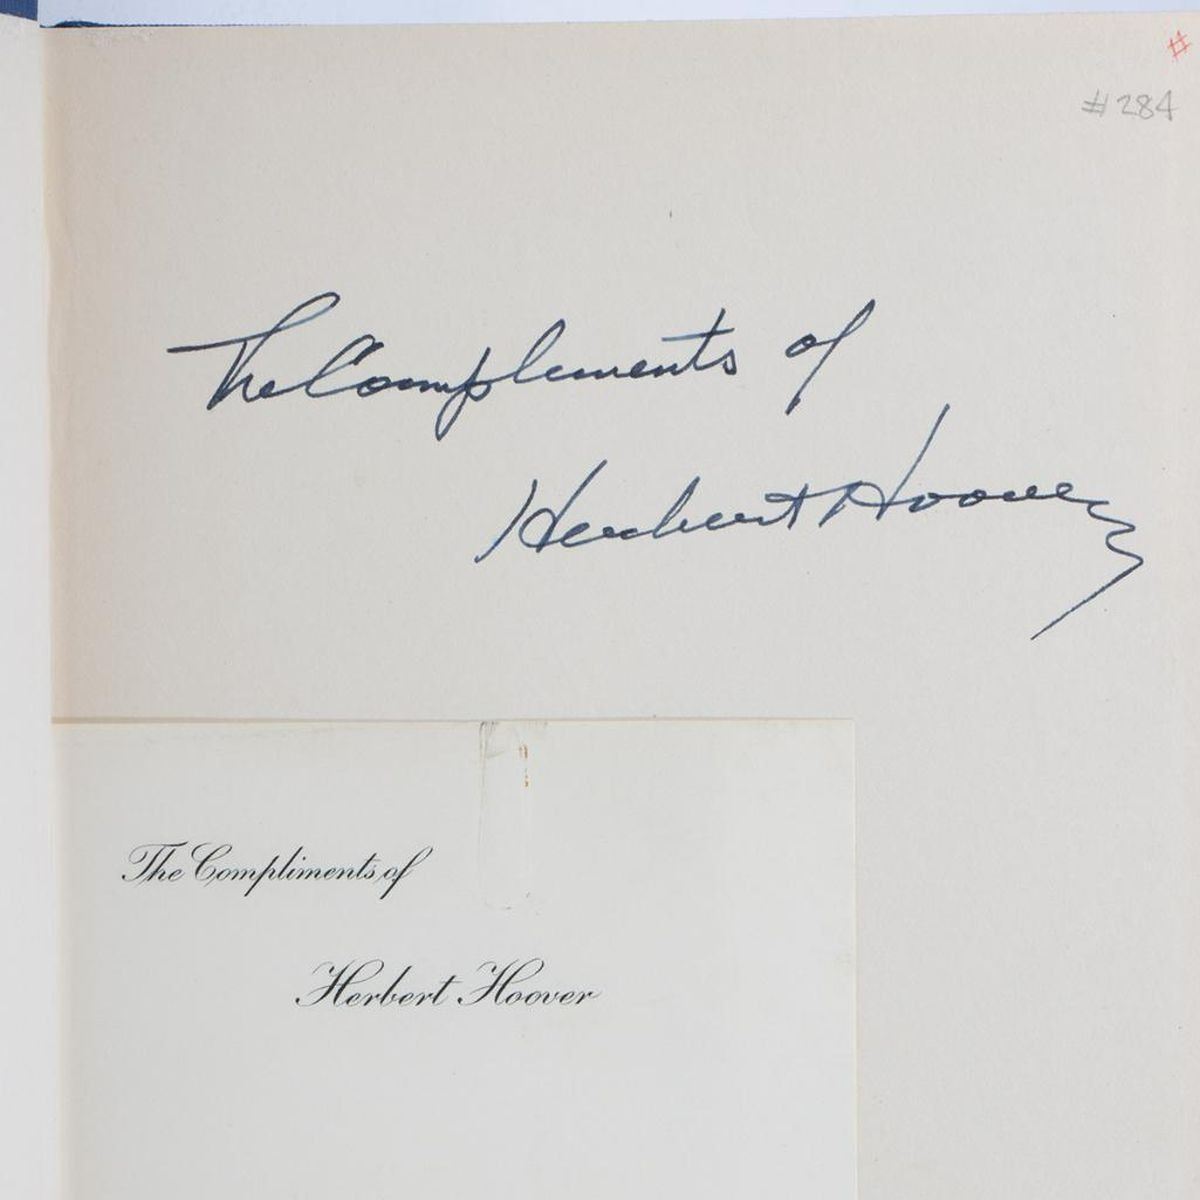 #
#284
The Compliments of
Herbert Hoover
The Compliments of
Herbert Hoover